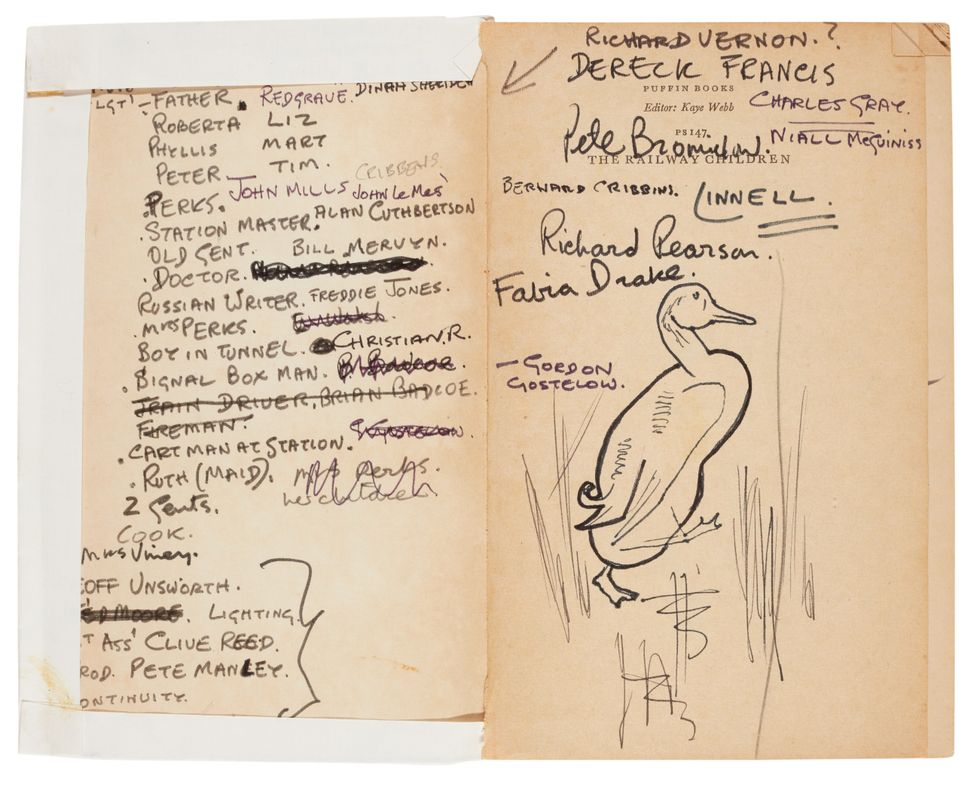 LGT' - FATHER. REDGRAVE. DINAH SHERIDEN
ROBERTA LIZ
PHYLLIS MART
PETER TIM.
CRIBBENS
PERKS. JOHN MILLS JOHN LE MES'
STATION MASTER. ALAN CUTHBERTSON
OLD GENT. BILL MERVYN.
DOCTOR.
RUSSIAN WRITER. FREDDIE JONES.
MRS PERKS.
BOY IN TUNNEL. CHRISTIAN. R.
SIGNAL BOX MAN. B. Badcoe.
TRAIN DRIVER, BRIAN BADCOE.
FIREMAN.
CARTMAN AT STATION.
RUTH (MAID). Mrs Perks.
her children.
2 Gents.
COOK.
Mrs Viney.
EOFF UNSWORTH.
ED MOORE. LIGHTING.
T ASS' CLIVE REED.
ROD. PETE MANLEY.
ONTINUITY.
RICHARD VERNON.?
DERECK FRANCIS
PUFFIN BOOKS
Editor: Kaye Webb
CHARLES GRAY.
PS147.
Pete Bromilow.
NIALL McGUINISS
THE RAILWAY CHILDREN
BERNARD CRIBBINS.
LINNELL.
Richard Pearson.
Fabia Drake.
- GORDON
GOSTELOW.